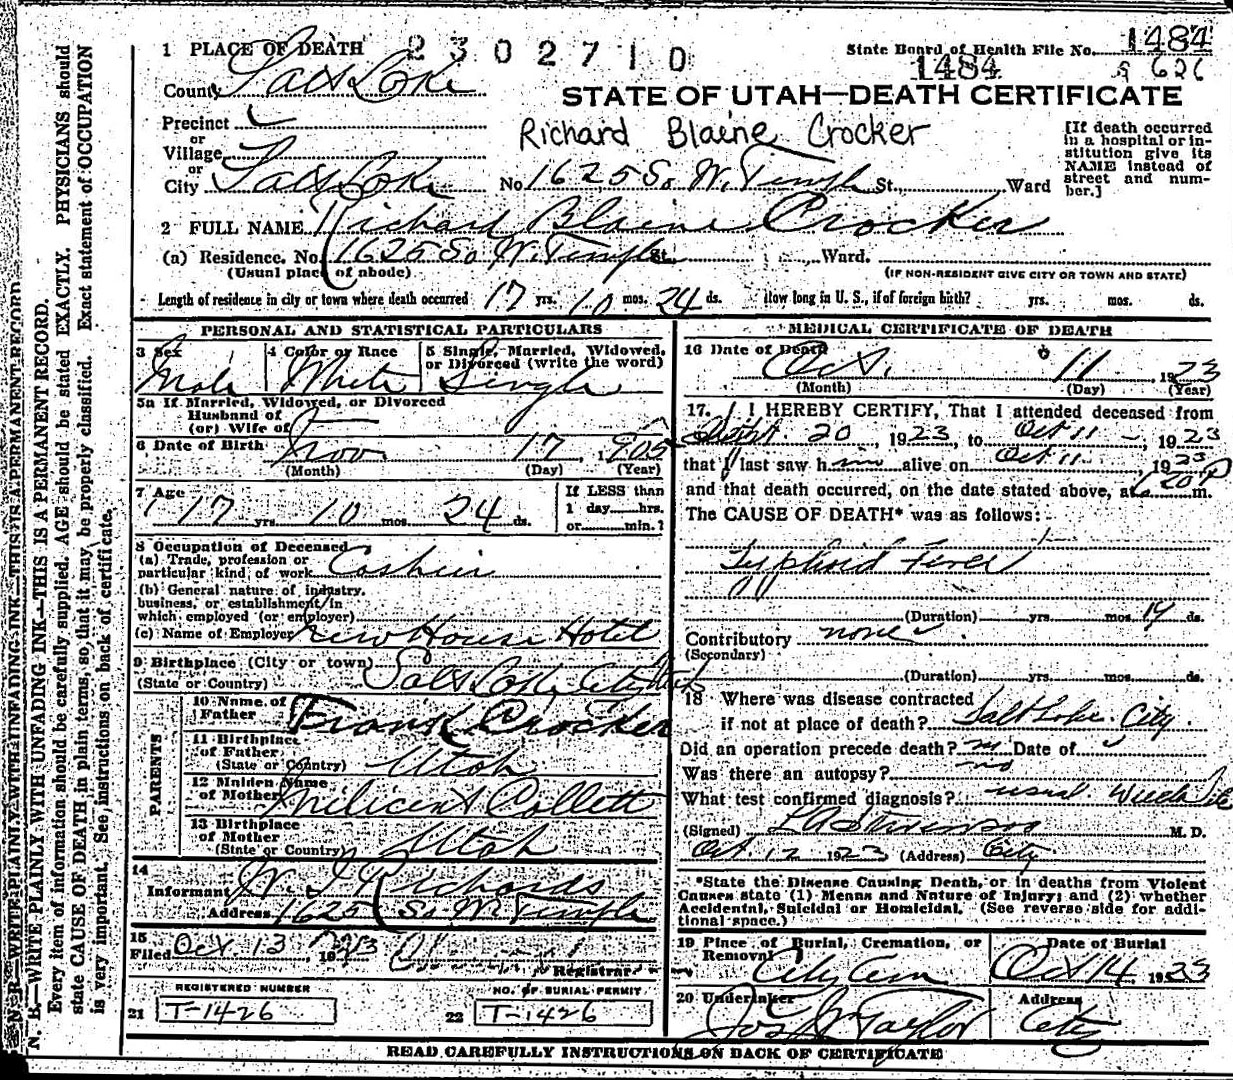 1 PLACE OF DEATH 2302710 State Board of Health File No. 1484
1484 626
County Salt Lake
STATE OF UTAH—DEATH CERTIFICATE
Precinct
or
Village
or
City Salt Lake
Richard Blaine Crocker
No. 1625 So. W. Temple St., Ward
[If death occurred
in a hospital or in-
stitution give its
NAME instead of
street and num-
ber.]
2 FULL NAME Richard Blaine Crocker
(a) Residence. No. 1625 So W. Temple St. Ward.
(Usual place of abode) (IF NON-RESIDENT GIVE CITY OR TOWN AND STATE)
Length of residence in city or town where death occurred 17 yrs. 10 mos. 24 ds. How long in U. S., if of foreign birth? yrs. mos. ds.
PERSONAL AND STATISTICAL PARTICULARS
3 Sex Male 4 Color or Race White 5 Single, Married, Widowed, or Divorced (write the word) Single
5a If Married, Widowed, or Divorced
Husband of
(or) Wife of
6 Date of Birth Nov 17, 1905
(Month) (Day) (Year)
7 Age 17 yrs. 10 mos. 24 ds.
If LESS than
1 day hrs.
or min.?
8 Occupation of Deceased
(a) Trade, profession or
particular kind of work Cashier
(b) General nature of industry,
business, or establishment in
which employed (or employer)
(c) Name of Employer New House Hotel
9 Birthplace (City or town) Salt Lake City Utah
(State or Country)
PARENTS
10 Name of
Father Frank Crocker
11 Birthplace
of Father
(State or Country) Utah
12 Maiden Name
of Mother Milicent Collett
13 Birthplace
of Mother
(State or Country) Utah
14
Informant W. J. Richards
Address 1625 So W. Temple
15
Filed Oct. 13, 1923
Registrar
REGISTERED NUMBER NO. OF BURIAL PERMIT
21 T-1426 22 T-1426
MEDICAL CERTIFICATE OF DEATH
16 Date of Death Oct. 11 1923
(Month) (Day) (Year)
17. I HEREBY CERTIFY, That I attended deceased from
Sept. 20, 1923, to Oct 11, 1923
that I last saw him alive on Oct 11, 1923
and that death occurred, on the date stated above, at m.
The CAUSE OF DEATH* was as follows:
Typhoid Fever
(Duration) yrs. mos. 19 ds.
Contributory none
(Secondary)
(Duration) yrs. mos. ds.
18 Where was disease contracted
if not at place of death? Salt Lake City.
Did an operation precede death? no Date of
Was there an autopsy? no
What test confirmed diagnosis? usual
(Signed) M. D.
Oct. 12 1923 (Address) City
*State the Disease Causing Death, or in deaths from Violent
Causes state (1) Means and Nature of Injury; and (2) whether
Accidental, Suicidal or Homicidal. (See reverse side for addi-
tional space.)
19 Place of Burial, Cremation, or Removal City Cem
Date of Burial Oct 14 1923
20 Undertaker Jos Wm Taylor
Address City
READ CAREFULLY INSTRUCTIONS ON BACK OF CERTIFICATE
N. B.—WRITE PLAINLY WITH UNFADING INK—THIS IS A PERMANENT RECORD
N. B.—WRITE PLAINLY WITH UNFADING INK—THIS IS A PERMANENT RECORD.
Every item of information should be carefully supplied. AGE should be stated EXACTLY. PHYSICIANS should
state CAUSE OF DEATH in plain terms, so that it may be properly classified. Exact statement of OCCUPATION
is very important. See instructions on back of certificate.